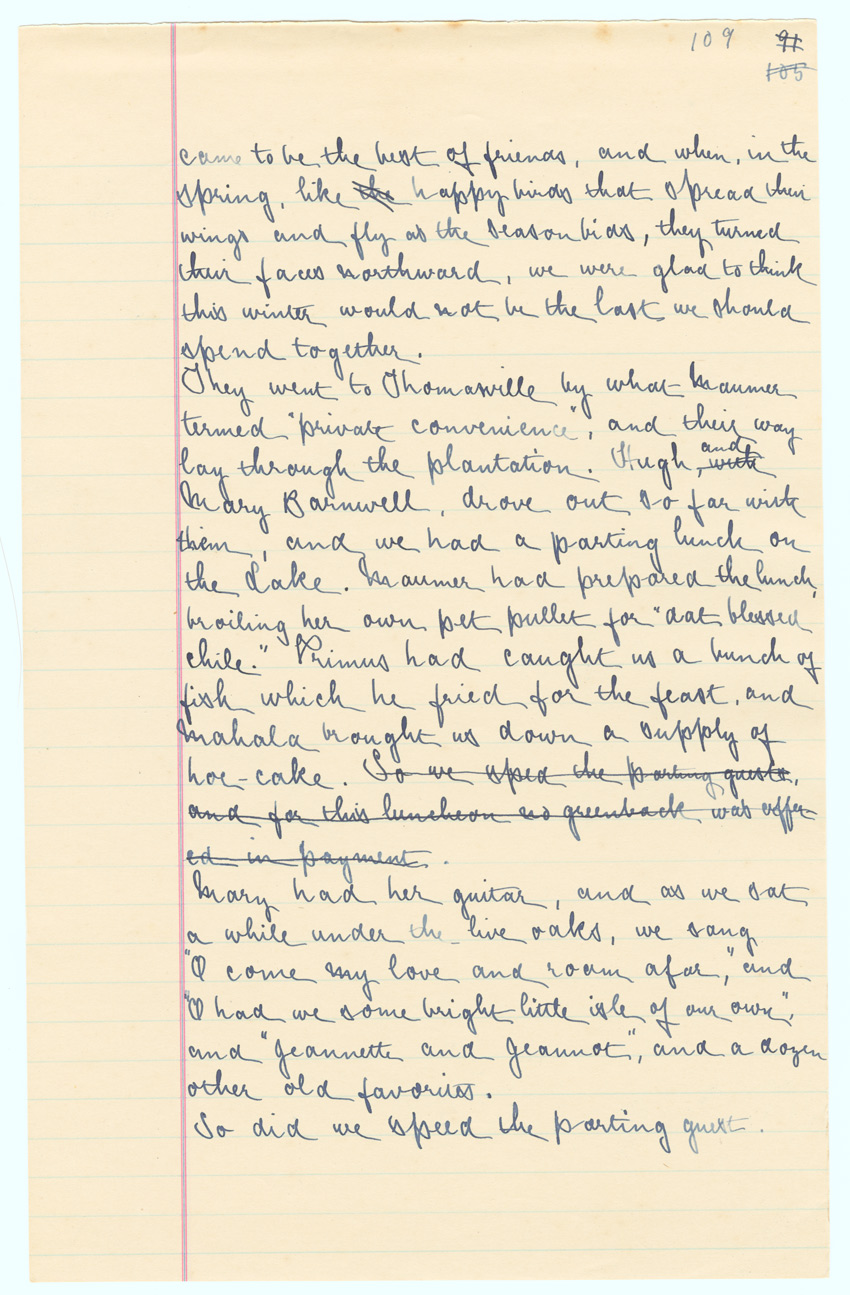 109 91
105
came to be the best of friends, and when, in the
spring, like the happy birds that spread their
wings and fly as the season bids, they turned
their faces northward, we were glad to think
this winter would not be the last we should
spend together.
They went to Thomasville by what Maumer
termed "private convenience", and their way
lay through the plantation. Hugh, with and
Mary Barnwell, drove out so far with
them, and we had a parting lunch on
the Lake. Maumer had prepared the lunch,
broiling her own pet pullet for "dat blessed
chile." Primus had caught us a bunch of
fish which he fried for the feast, and
Mahala brought us down a supply of
hoe-cake. So we sped the parting guests,
and for this luncheon no greenback was offer-
ed in payment.
Mary had her guitar, and as we sat
a while under the live oaks, we sang
"O come my love and roam afar," and
"O had we some bright little isle of our own",
and "Jeannette and Jeannot", and a dozen
other old favorites.
So did we speed the parting guest.